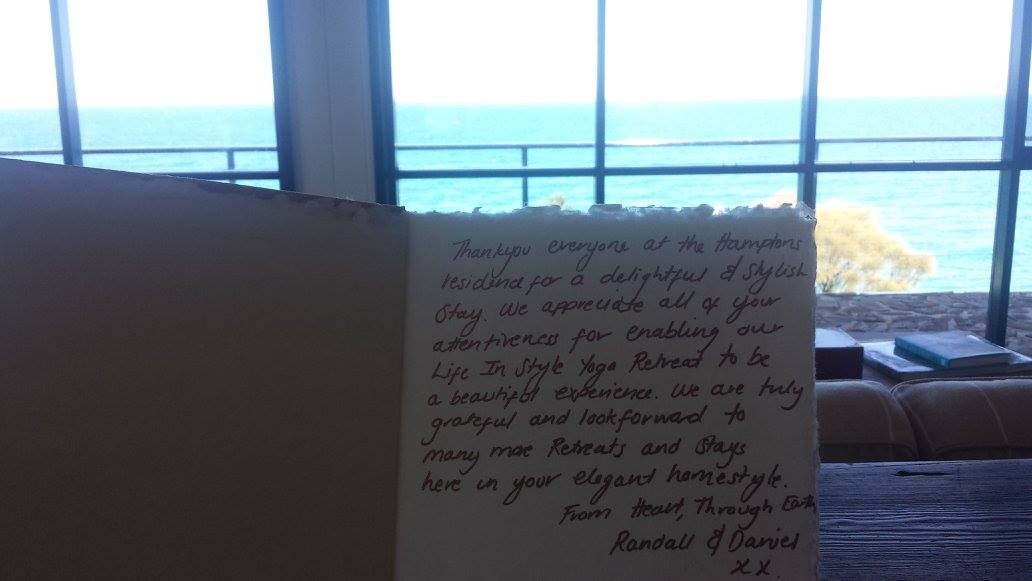 Thankyou everyone at the Hamptons
residence for a delightful & Stylish
Stay. We appreciate all of your
attentiveness for enabling our
Life In Style Yoga Retreat to be
a beautiful experience. We are truly
grateful and look forward to
many more Retreats and Stays
here in your elegant homestyle.
From Heart, Through Earth
Randall & Daniel
x x